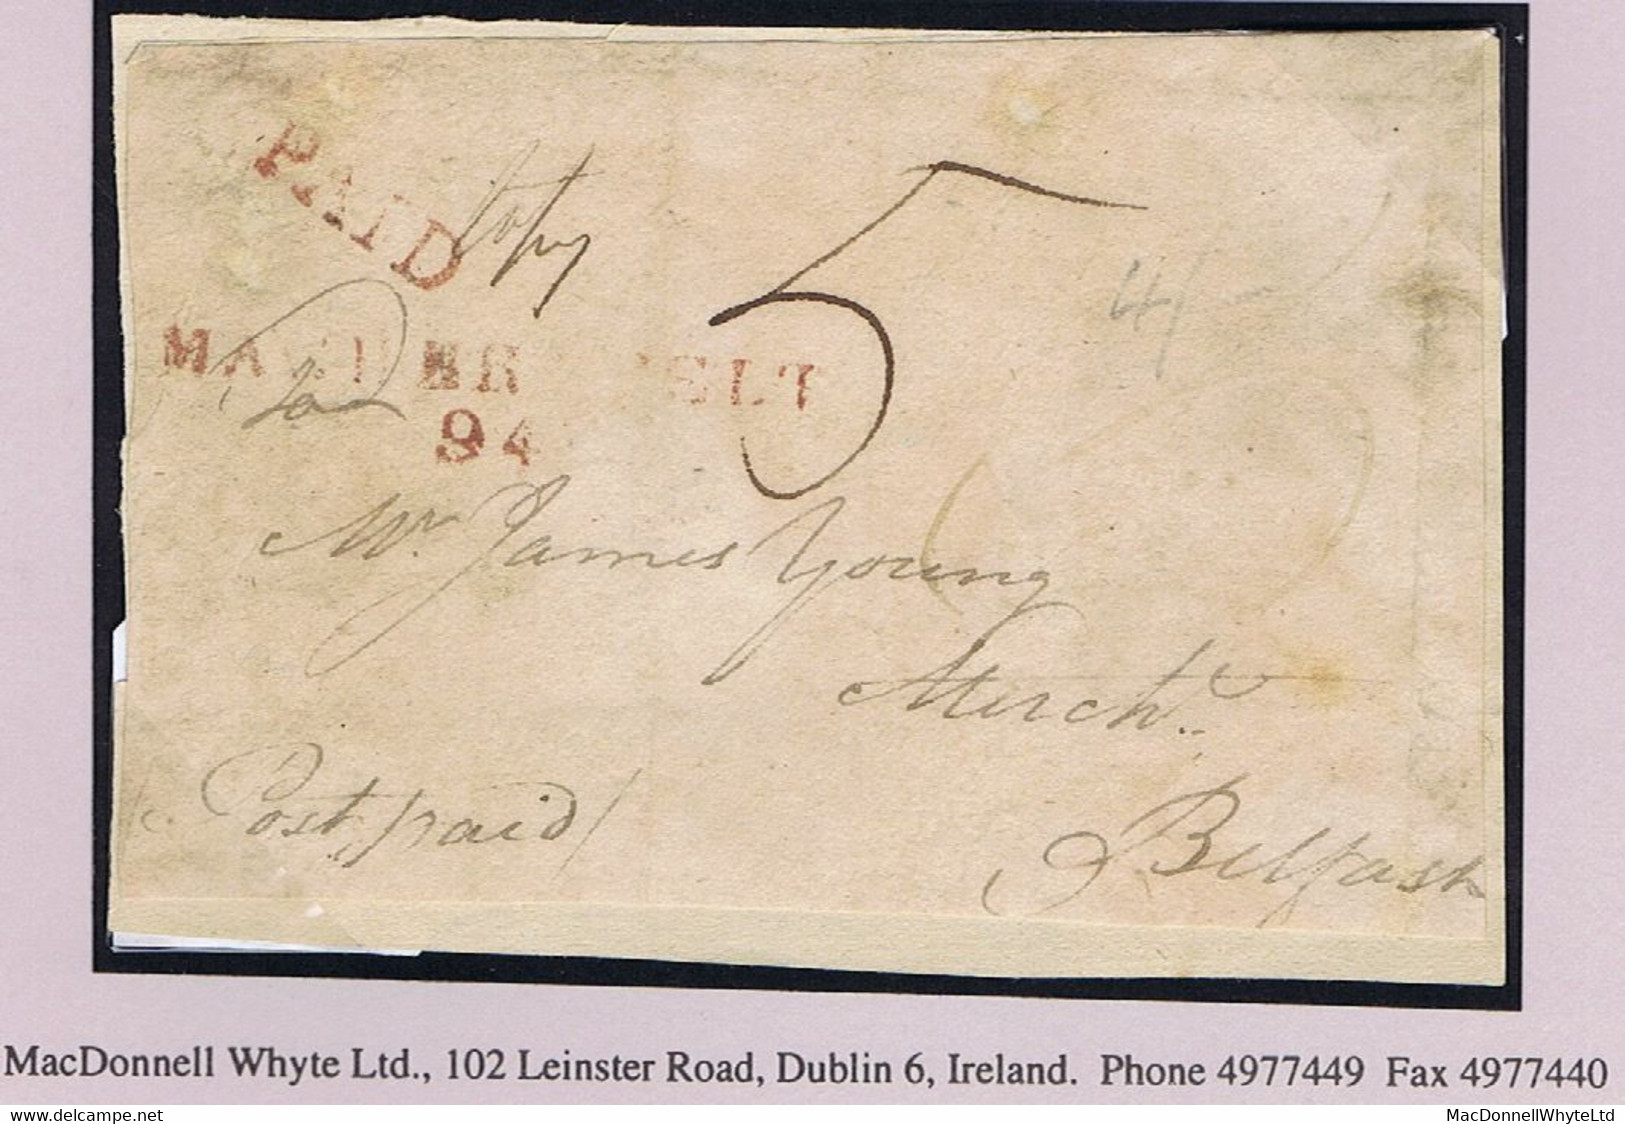 PAID
5
4/-
94
Mr. James Young
Mercht.
Post paid/
Belfast
MacDonnell Whyte Ltd., 102 Leinster Road, Dublin 6, Ireland. Phone 4977449 Fax 4977440
delcampe.net
MacDonnellWhyteLtd